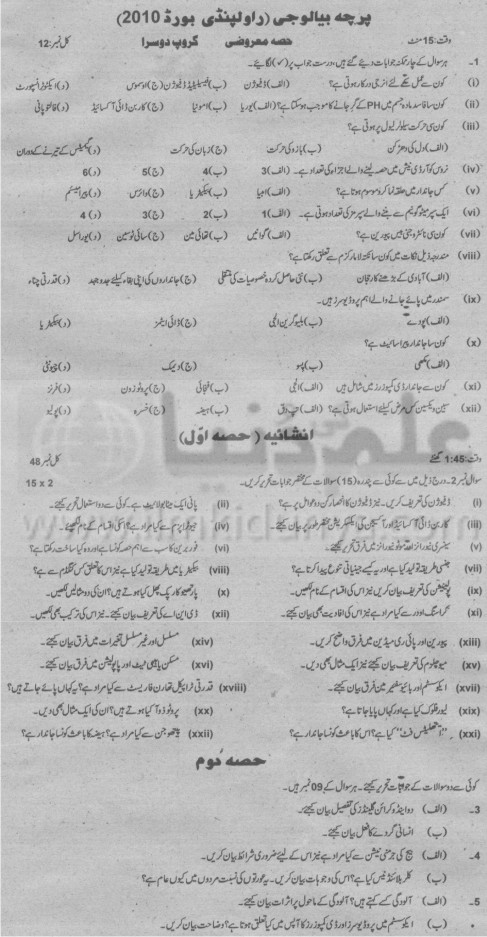 پرچہ بیالوجی (راولپنڈی بورڈ 2010)
وقت: 15 منٹ حصہ معروضی گروپ دوسرا کل نمبر: 12
1- ہر سوال کے چار ممکنہ جوابات دیئے گئے ہیں، درست جواب پر (✓) لگائیے۔
(i) کون سے عمل کیلئے انرجی درکار ہوتی ہے؟ (الف) ڈفیوژن (ب) فیسیلیٹیٹڈ ڈفیوژن (ج) اوسموس (د) ایکٹو ٹرانسپورٹ
(ii) کون سا فاسد مادہ جسم میں PH کے گر جانے کا موجب ہو سکتا ہے؟ (الف) یوریا (ب) امونیا (ج) کاربن ڈائی آکسائیڈ (د) فالتو پانی
(iii) کون سی حرکت سیلولر لیول پر ہوتی ہے؟
(الف) دل کی دھڑکن (ب) بازو کی حرکت (ج) زبان کی حرکت (د) گیمیٹس کے تیرنے کے دوران
(iv) نروس کوآرڈی نیشن میں حصہ لینے والے اجزاء کی تعداد ہے۔ (الف) 3 (ب) 4 (ج) 5 (د) 6
(v) کس جاندار میں حلقہ نما کروموسوم ہوتا ہے؟ (الف) امیبا (ب) بیکٹیریا (ج) وائرس (د) پیرامیشیم
(vi) ایک سپرمیٹوگونیم سے بننے والے سپرمز کی تعداد ہوتی ہے۔ (الف) 1 (ب) 2 (ج) 3 (د) 4
(vii) کون سی نائٹروجنی بیس پیورین ہے؟ (الف) گوانین (ب) تھائی مین (ج) سائی ٹوسین (د) یوراسل
(viii) مندرجہ ذیل نکات میں کون سا نکتہ لامارکزم سے تعلق رکھتا ہے؟
(الف) آبادی کے بڑھنے کا رجحان (ب) نئی حاصل کردہ خصوصیات کی منتقلی (ج) جانداروں کی اپنی بقاء کیلئے جدوجہد (د) قدرتی چناؤ
(ix) سمندر میں پائے جانے والے اہم پروڈیوسرز ہیں۔
(الف) پودے (ب) بلیو گرین الجی (ج) ڈائی ایٹمز (د) بیکٹیریا
(x) کون سا جاندار پیراسائیٹ ہے؟
(الف) مکھی (ب) پسو (ج) دیمک (د) چیونٹی
(xi) کون سے جاندار ڈی کمپوزرز میں شامل ہیں (الف) الجی (ب) فنجائی (ج) پروٹوزون (د) فرنز
(xii) سیبن ویکسین کس مرض کیلئے استعمال ہوتی ہے؟ (الف) تپ دق (ب) ہیضہ (ج) خسرہ (د) پولیو
انشائیہ (حصہ اوّل)
وقت: 1:45 گھنٹے کل نمبر 48
سوال نمبر 2- درج ذیل میں سے کوئی سے پندرہ (15) سوالات کے مختصر جوابات تحریر کریں۔ 15 x 2
(i) ڈفیوژن کی تعریف کریں۔ نیز ڈفیوژن کا انحصار کن دو عوامل پر ہے؟ (ii) پانی ایک میٹابولائیٹ ہے۔ کوئی سے دو استعمال تحریر کیجئے۔
(iii) کاربن ڈائی آکسائیڈ اور آکسیجن کی ایکسچینج مختصر طور پر بیان کیجئے۔ (iv) ٹیوٹراپزم سے کیا مراد ہے؟ اسکی اقسام کے نام لکھیئے۔
(v) سینسری نیورانز اور موٹر نیورانز میں فرق تحریر کیجئے۔ (vi) فور برین کا سب سے اہم حصہ کونسا ہے اور وہ کیا ساخت رکھتا ہے؟
(vii) جنسی طریقہ تولید کیا ہے اور یہ کیسے جینیاتی تنوع پیدا کرتا ہے؟ (viii) بیکٹیریا میں طریقہ تولید کیا ہے نیز اس کا تعلق کس کنگڈم سے ہے؟
(ix) پولینیشن کی تعریف بیان کریں نیز اس کی اقسام کے نام لکھیں۔ (x) پارتھینوکارپک پھل کیا ہوتے ہیں؟ ان کی دو مثالیں لکھیں۔
(xi) کراسنگ اوور سے کیا مراد ہے نیز اس کی افادیت بھی بیان کیجئے۔ (xii) ڈی این اے کی تعریف بیان کیجئے۔ نیز اس کی ترکیب بھی لکھیں۔
(xiii) پیورین اور پائی ری میڈین میں فرق واضح کریں۔ (xiv) مسلسل اور غیر مسلسل تغیرات میں فرق بیان کیجئے۔
(xv) میوچلزم کی تعریف بیان کیجئے نیز ایک مثال بھی دیں۔ (xvi) مسکن یا ہیبی ٹیٹ اور پاپولیشن میں فرق بیان کیجئے۔
(xvii) ایکوسسٹم اور بائیوسفیئر میں فرق بیان کیجئے۔ (xviii) قدرتی ٹراپیکل تھارن فاریسٹ سے کیا مراد ہے؟ یہ کہاں پائے جاتے ہیں؟
(xix) لیور فلوک کیا ہے اور کہاں پایا جاتا ہے؟ (xx) پروٹوزوآ کیا ہوتے ہیں؟ ان کی ایک مثال بھی دیں۔
(xxi) "ایتھلیٹس فٹ" کیا ہے؟ اس کا باعث کونسا جاندار ہے؟ (xxii) پیتھوجن سے کیا مراد ہے؟ ہیضہ کا باعث کونسا جاندار ہے؟
حصہ دوم
کوئی سے دو سوالات کے جوابات تحریر کیجئے۔ ہر سوال کے 09 نمبر ہیں۔
3- (الف) دو اینڈوکرائن گلینڈز کی تفصیل بیان کیجئے۔
(ب) انسانی گردے کا فعل بیان کیجئے۔
4- (الف) بیج کی جرمی نیشن سے کیا مراد ہے نیز اس کے لیئے ضروری شرائط بیان کریں۔
(ب) کلر بلائنڈنیس کیا ہے؟ اس کی وجوہات بیان کریں۔ یہ عورتوں کی نسبت مردوں میں کیوں عام ہے؟
5- (الف) آلودگی کسے کہتے ہیں؟ آلودگی کے ماحول پر اثرات بیان کیجئے۔
(ب) ایکوسسٹم میں پروڈیوسرز اور ڈی کمپوزرز کا آپس میں کیا تعلق ہوتا ہے؟ وضاحت بیان کریں۔
علم کی دنیا